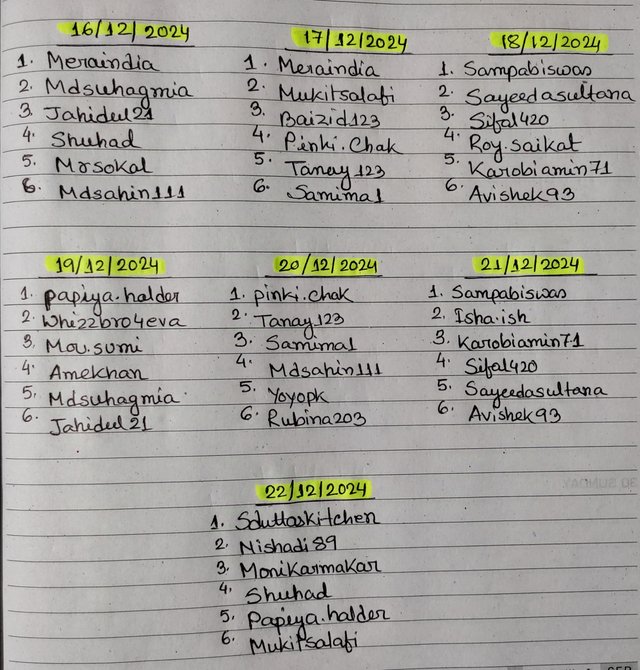 16/12/2024
1. Meraindia
2. Mdsuhagmia
3. Jahidul21
4. Shuhad
5. Mrsokal
6. Mdsahin111
17/12/2024
1. Meraindia
2. Mukitsalafi
3. Baizid123
4. Pinki.Chak
5. Tanay123
6. Samima1
18/12/2024
1. Sampabiswas
2. Sayeedasultana
3. Sifat420
4. Roy.saikat
5. Karobiamin71
6. Avishek93
19/12/2024
1. papiya.halder
2. Whizzbro4eva
3. Mou.sumi
4. Amekhan
5. Mdsuhagmia
6. Jahidul21
20/12/2024
1. pinki.chak
2. Tanay123
3. Samima1
4. Mdsahin111
5. Yoyopk
6. Rubina203
21/12/2024
1. Sampabiswas
2. Isha.ish
3. Karobiamin71
4. Sifat420
5. Sayeedasultana
6. Avishek93
22/12/2024
1. Sduttaskitchen
2. Nishadi89
3. Monikarmakar
4. Shuhad
5. Papiya.halder
6. Mukitsalafi